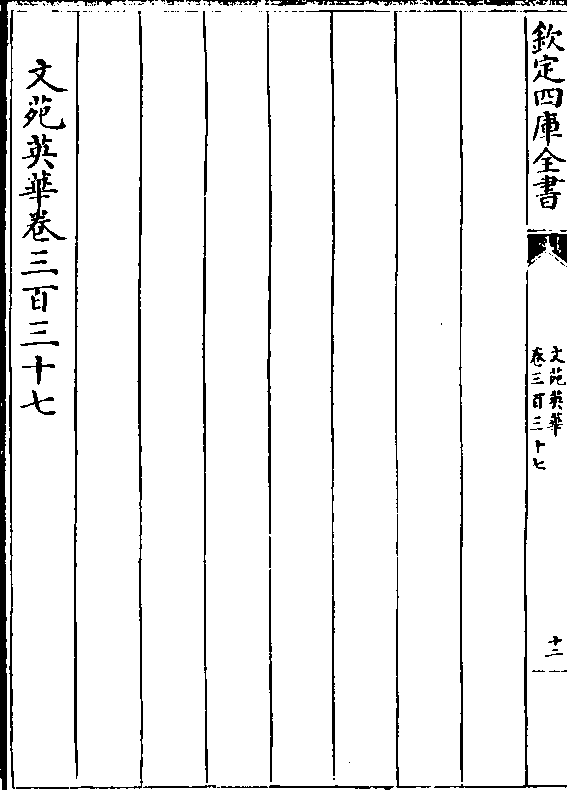 欽定四庫全書
文苑英華
卷三百三十七
十二
文苑英華卷三百三十七